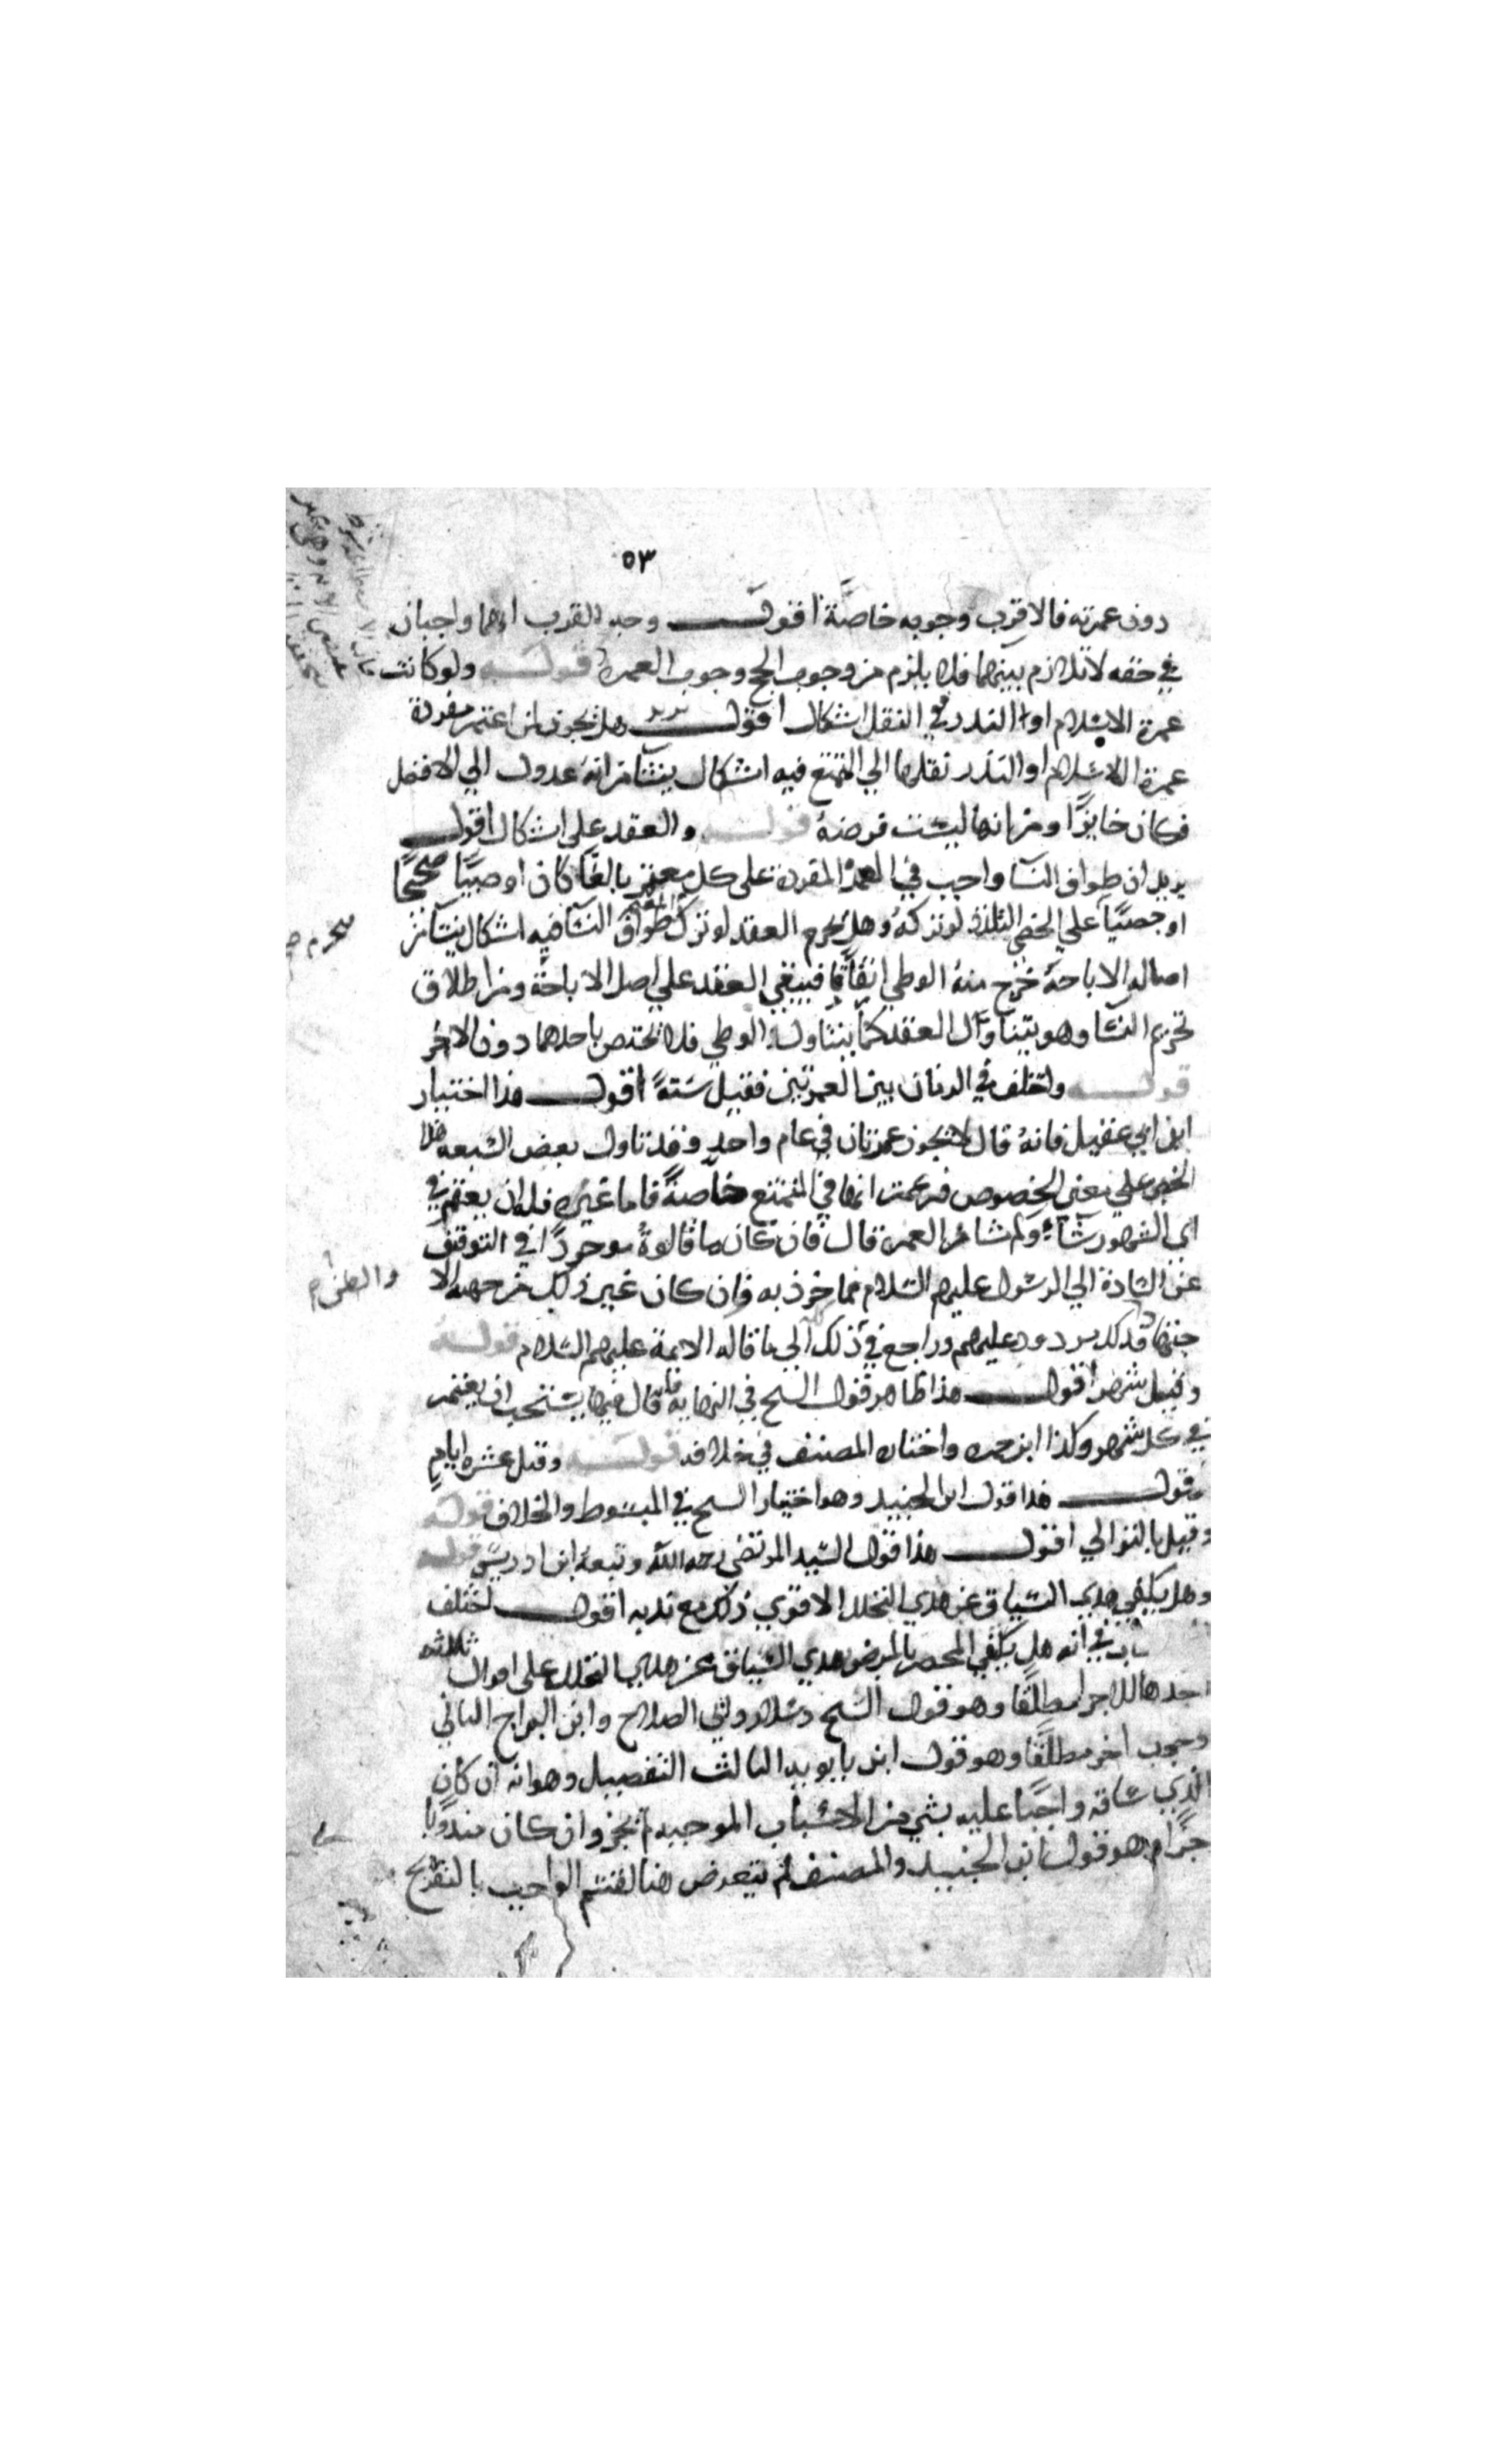 ٥٣
دون عمرته فالاقرب وجوبه خاصة اقول وجه القرب انهما واجبان
في حقه لا تلازم بينهما فلا يلزم من وجوب الحج وجوب العمرة قوله ولو كانت
عمرة الاسلام او النذر ففي النقل اشكال اقول يريد هل يجوز لمن اعتمر مفردة
عمرة الاسلام او النذر نقلها الي التمتع فيه اشكال ينشا من انه عدول الي الافضل
فكان جايزا ومن انها ليست فرضه قوله والعقد على اشكال اقول
يريد ان طواف النسا واجب في العمرة المفردة على كل معتمر بالغا كان او صبيا صحيحا
او خصيا علي الخصي التلذذ لو تركه وهل يحرم العقد لو ترك طواف النسا فيه اشكال ينشا من
اصالة الاباحة خرج منه الوطي اتفاقا فيبقي العقد علي اصل الاباحة ومن اطلاق
تحريم النسا وهو يتناول العقد كما يتناول الوطي فلا تختص باحدهما دون الاخر
قوله واختلف في الزمان بين العمرتين فقيل سنة اقول هذا اختيار
ابن ابي عقيل فانه قال لا تجوز عمرتان في عام واحد وقد تاول بعض الشيعه هذا
الخبر علي معنى الخصوص فزعمت انها في التمتع خاصة فاما غيره فله ان يعتمر في
اي الشهور شاء وكم شا من العمرة قال فان كان ما قالوه موجودا في التوقيف
عن السادة الي الرسول عليهم السلام فماخوذ به وان كان غير ذلك من جهة الا
جتهاد فذلك مردود عليهم وراجع في ذلك الى ما قاله الائمة عليهم السلام قوله
وقيل شهر اقول هذا ظاهر قول الشيخ في النهايه فانه قال فيها يستحب ان يعتمر
في كل شهر وكذا ابن حمزه واختاره المصنف في خلافه قوله وقيل عشره ايام
اقول هذا قول ابن الجنيد وهو اختيار الشيخ في المبسوط والخلاف قوله
وقيل بالتوالي اقول هذا قول السيد المرتضى رحمه الله وتبعه ابن ادريس قوله
وهل يكفي هدي السياق عن هدي التحلل الاقوي ذلك مع ندبه اقول اختلف
في انه هل يكفي المحصر بالمرض هدي السياق عن هدي التحلل على اقوال ثلثه
احدها الاجزا مطلقا وهو قول الشيخ وسلار وابي الصلاح وابن البراج الثاني
وجوب اخر مطلقا وهو قول ابن بابويه الثالث التفصيل وهو انه ان كان
الذي ساقه واجبا عليه بشي من الاسباب الموجبه لم يجز وان كان مندوبا
اجزا وهو قول ابن الجنيد والمصنف لم يتعرض هنا لقسم الواجب بالتصريح